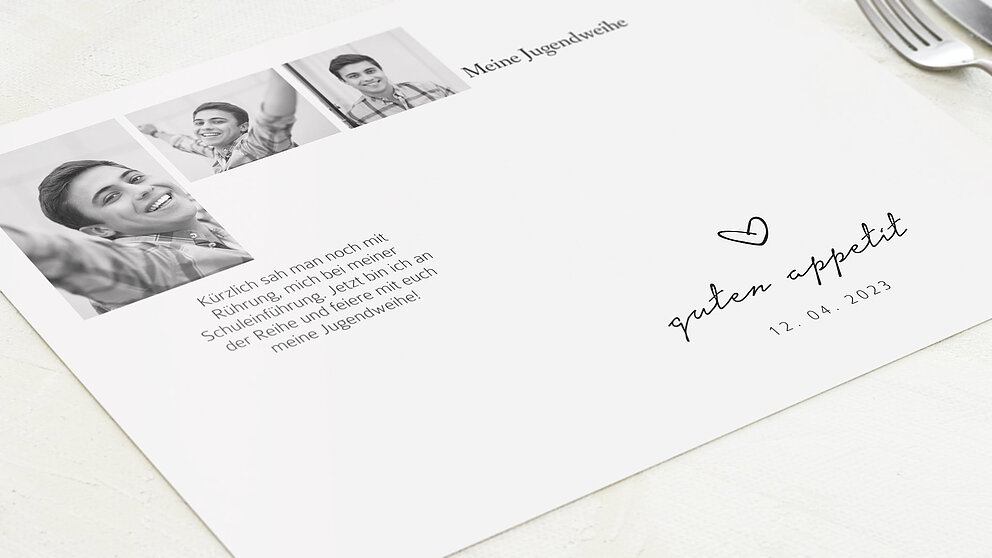 Meine Jugendweihe
Kürzlich sah man noch mit
Rührung, mich bei meiner
Schuleinführung. Jetzt bin ich an
der Reihe und feiere mit euch
meine Jugendweihe!
guten appetit
12. 04. 2023